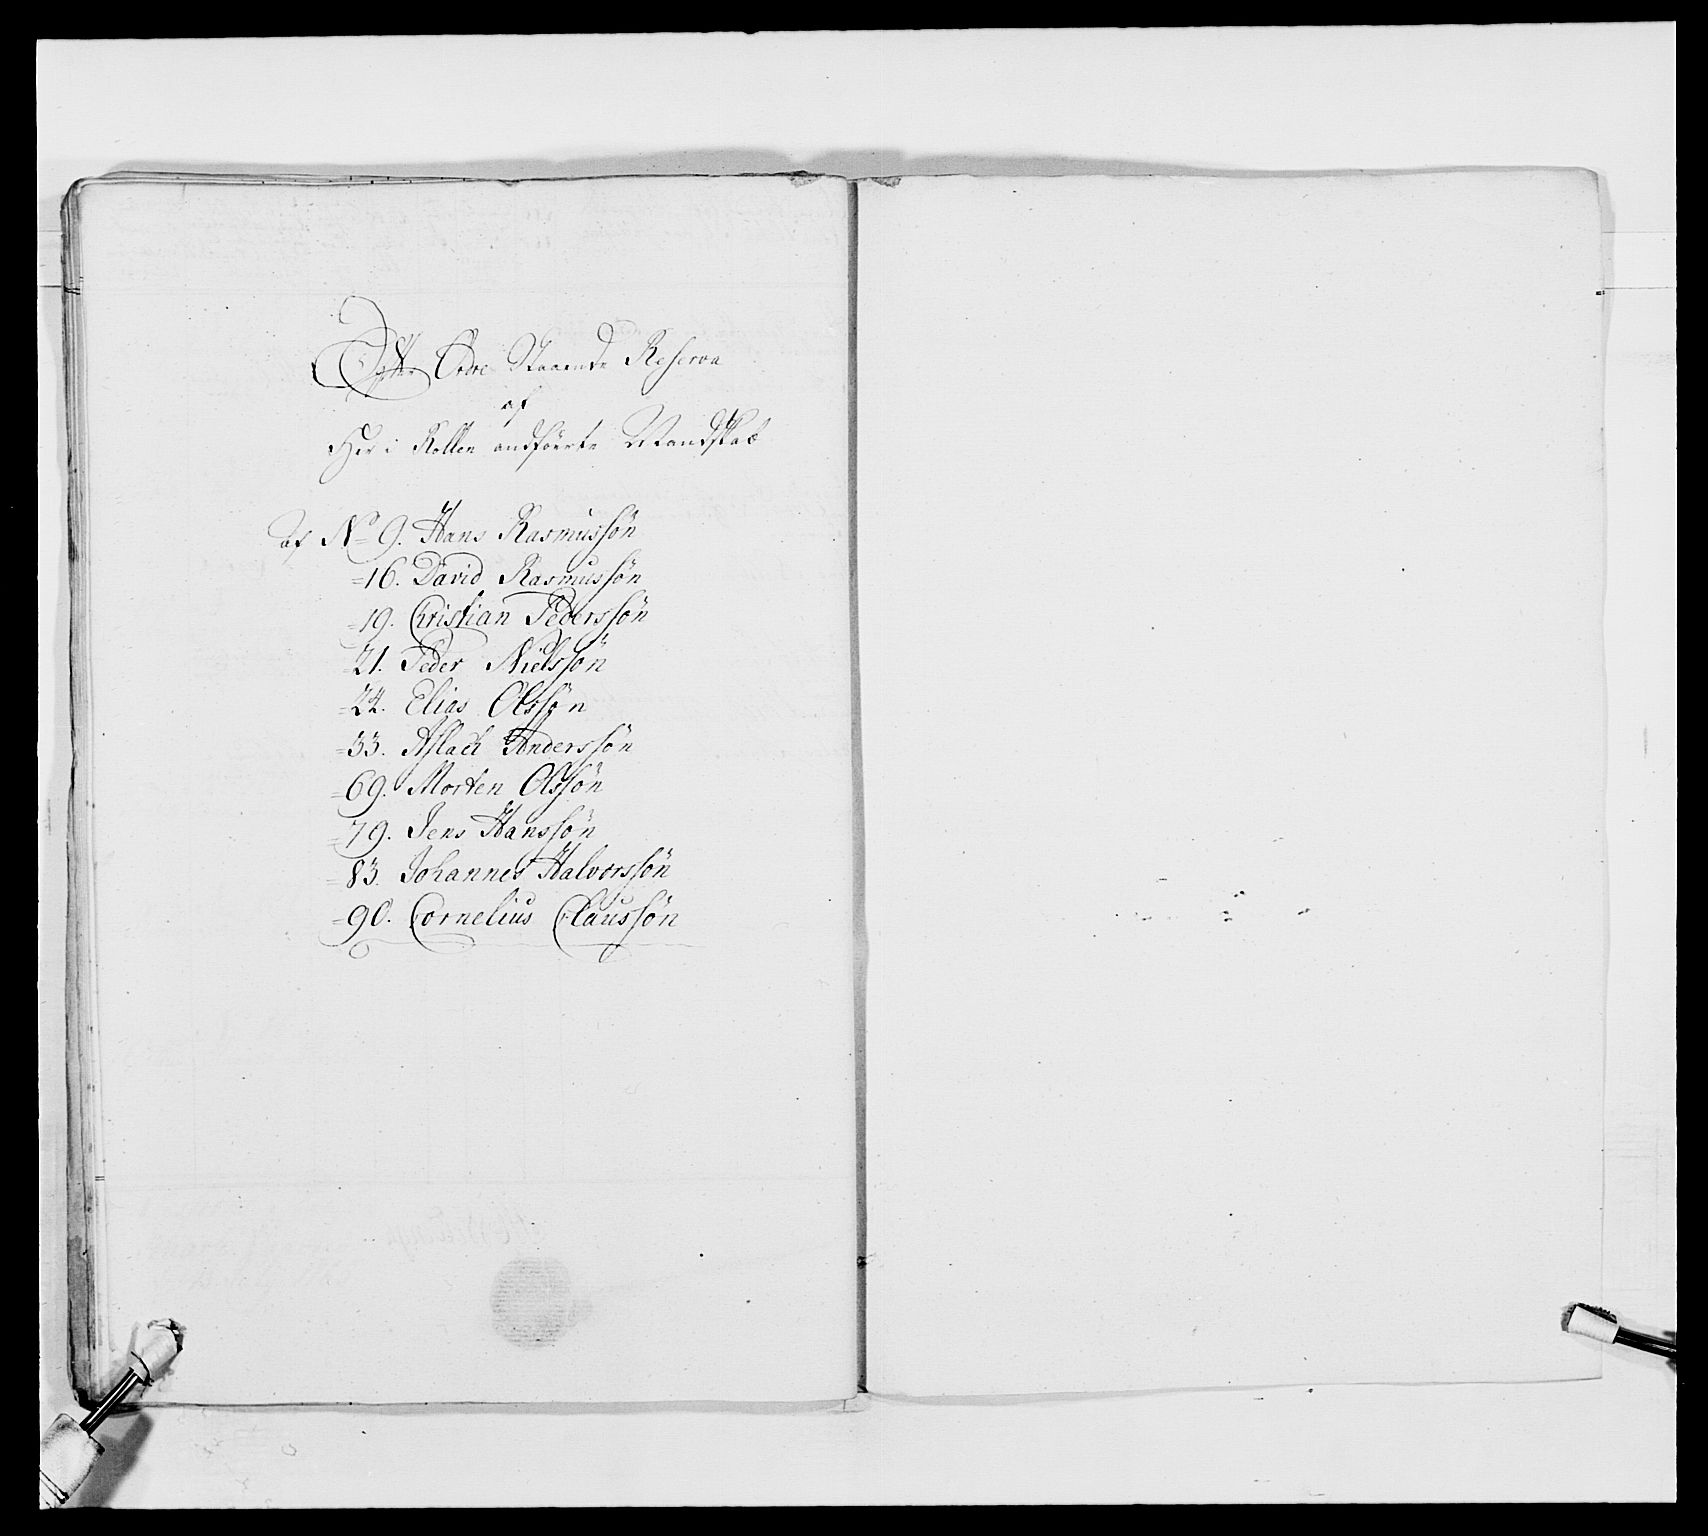 Efter Ordre Staaende Reserva
af
Her i Rollen andförte Mandskab
af No 9. Hans Rasmussön
=16. David Rasmussön
=19. Christian Pederssön
=21. Peder Nielssön
=24. Elias Olssön
=33. Aslach Anderssön
=69. Morten Olssön
=79. Jens Hanssön
=83. Johannes Halvorssön
=90. Cornelius Claussön